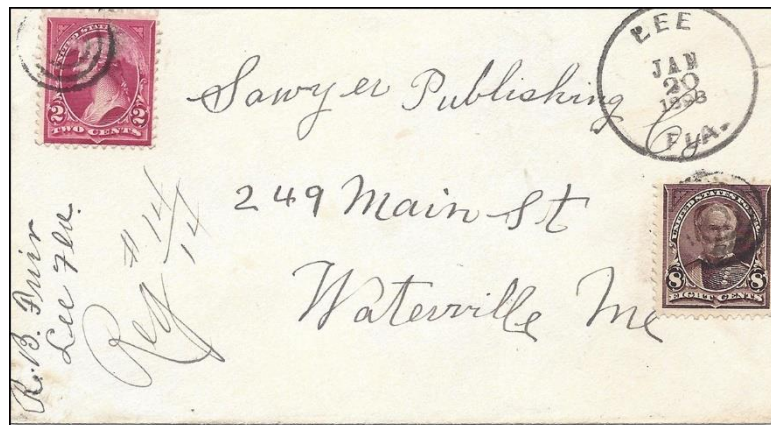 UNITED STATES
2 2
TWO CENTS
LEE
JAN
20
1898
FLA.
Sawyer Publishing Cy
249 Main St
Waterville Me
UNITED STATES POSTAGE
8 8
EIGHT CENTS
R. B.
Lee Fla.
Reg # 14/14